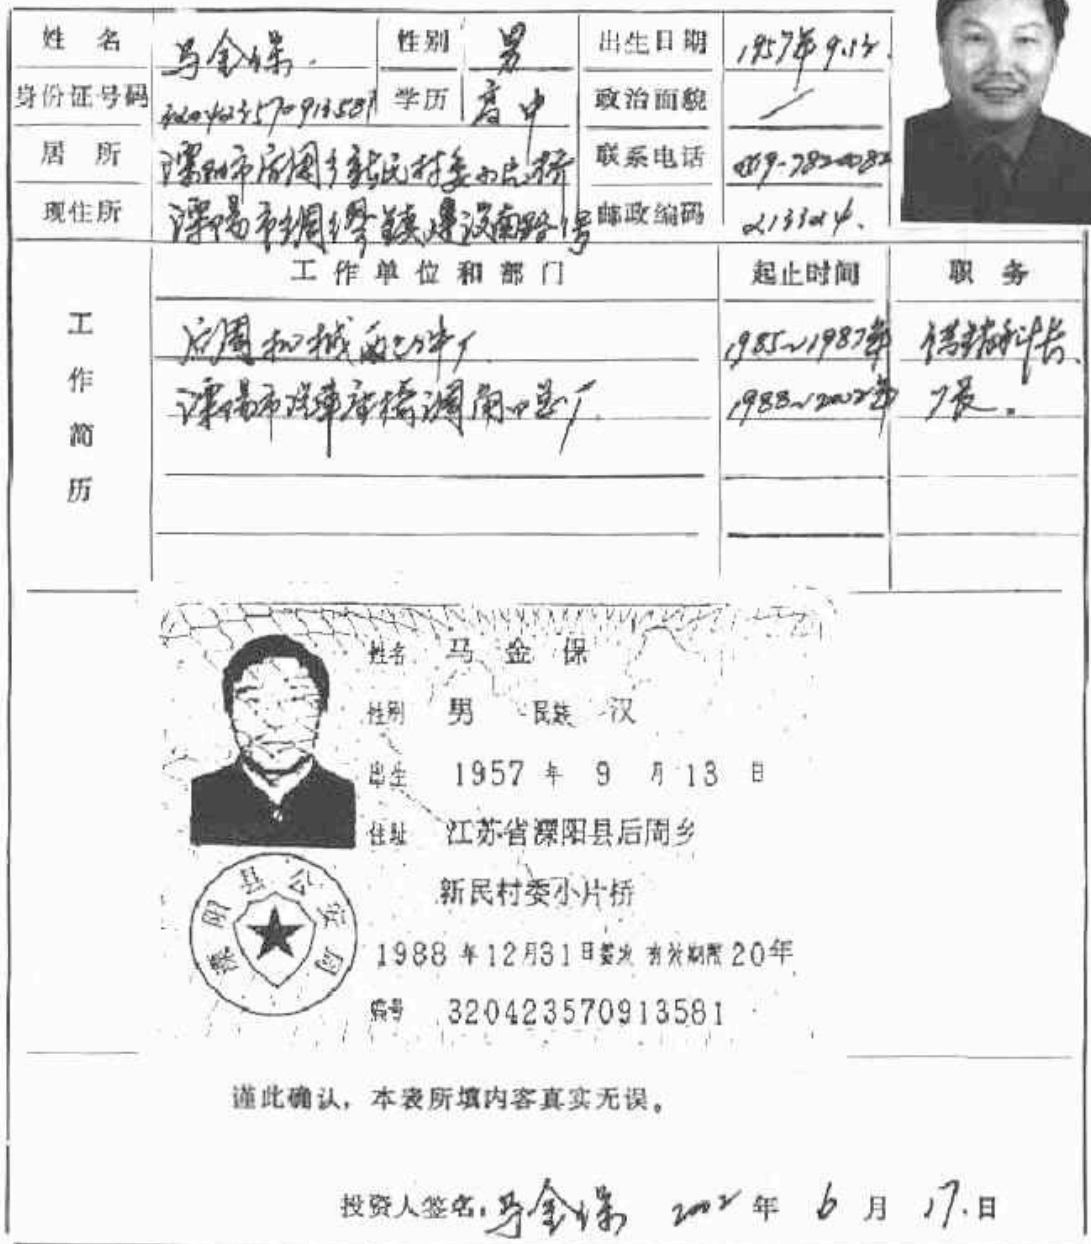 姓名 马金保. 性别 男 出生日期 1957年9.13.
身份证号码 320423570913581 学历 高中 政治面貌 /
居所 溧阳市后周乡新民村委小片桥 联系电话
现住所 溧阳市绸缪镇建设南路1号 邮政编码 213324.
工作单位和部门 起止时间 职务
工作简历
后周机械配件厂 1985~1987年 科长
溧阳市汽车座椅调角器总厂 1988~2002年 厂长.
姓名 马金保
性别 男 民族 汉
出生 1957年9月13日
住址 江苏省溧阳县后周乡
新民村委小片桥
溧阳县公安局
1988年12月31日签发 有效期限20年
编号 320423570913581
谨此确认，本表所填内容真实无误。
投资人签名：马金保 2002年6月17日